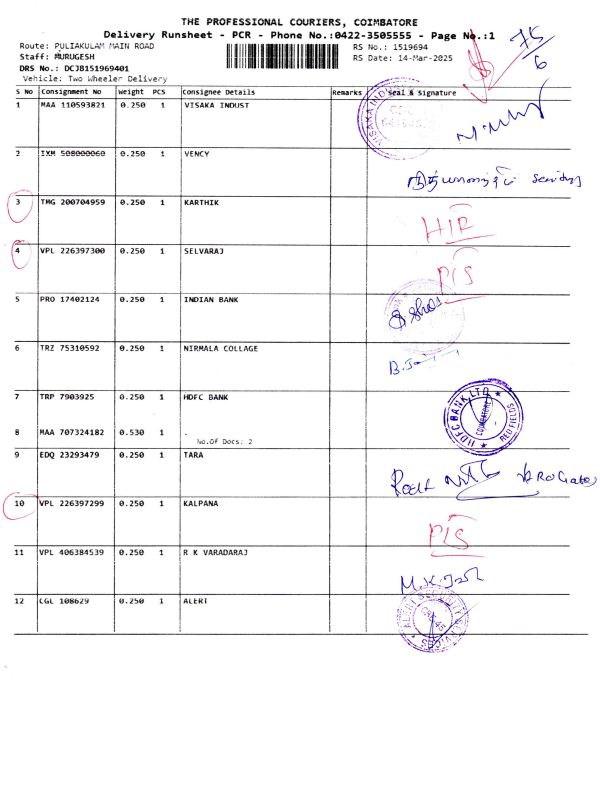 THE PROFESSIONAL COURIERS, COIMBATORE
Delivery Runsheet - PCR - Phone No.:0422-3505555 - Page No.:1
75/6
Route: PULIAKULAM MAIN ROAD
RS No.: 1519694
Staff: MURUGESH
RS Date: 14-Mar-2025
DRS No.: DCJ8151969401
Vehicle: Two Wheeler Delivery
S No Consignment No Weight PCS Consignee Details Remarks Seal & Signature
1 MAA 110593821 0.250 1 VISAKA INDUST
2 IXM 508000060 0.250 1 VENCY
3 TMG 200704959 0.250 1 KARTHIK
4 VPL 226397300 0.250 1 SELVARAJ
5 PRO 17402124 0.250 1 INDIAN BANK
6 TRZ 75310592 0.250 1 NIRMALA COLLAGE
7 TRP 7903925 0.250 1 HDFC BANK
HDFC BANK LTD COIMBATORE RED FIELDS
8 MAA 707324182 0.530 1 .
No.Of Docs: 2
9 EDQ 23293479 0.250 1 TARA
10 VPL 226397299 0.250 1 KALPANA
11 VPL 406384539 0.250 1 R K VARADARAJ
12 CGL 108629 0.250 1 ALERT
ALERT SECURITY